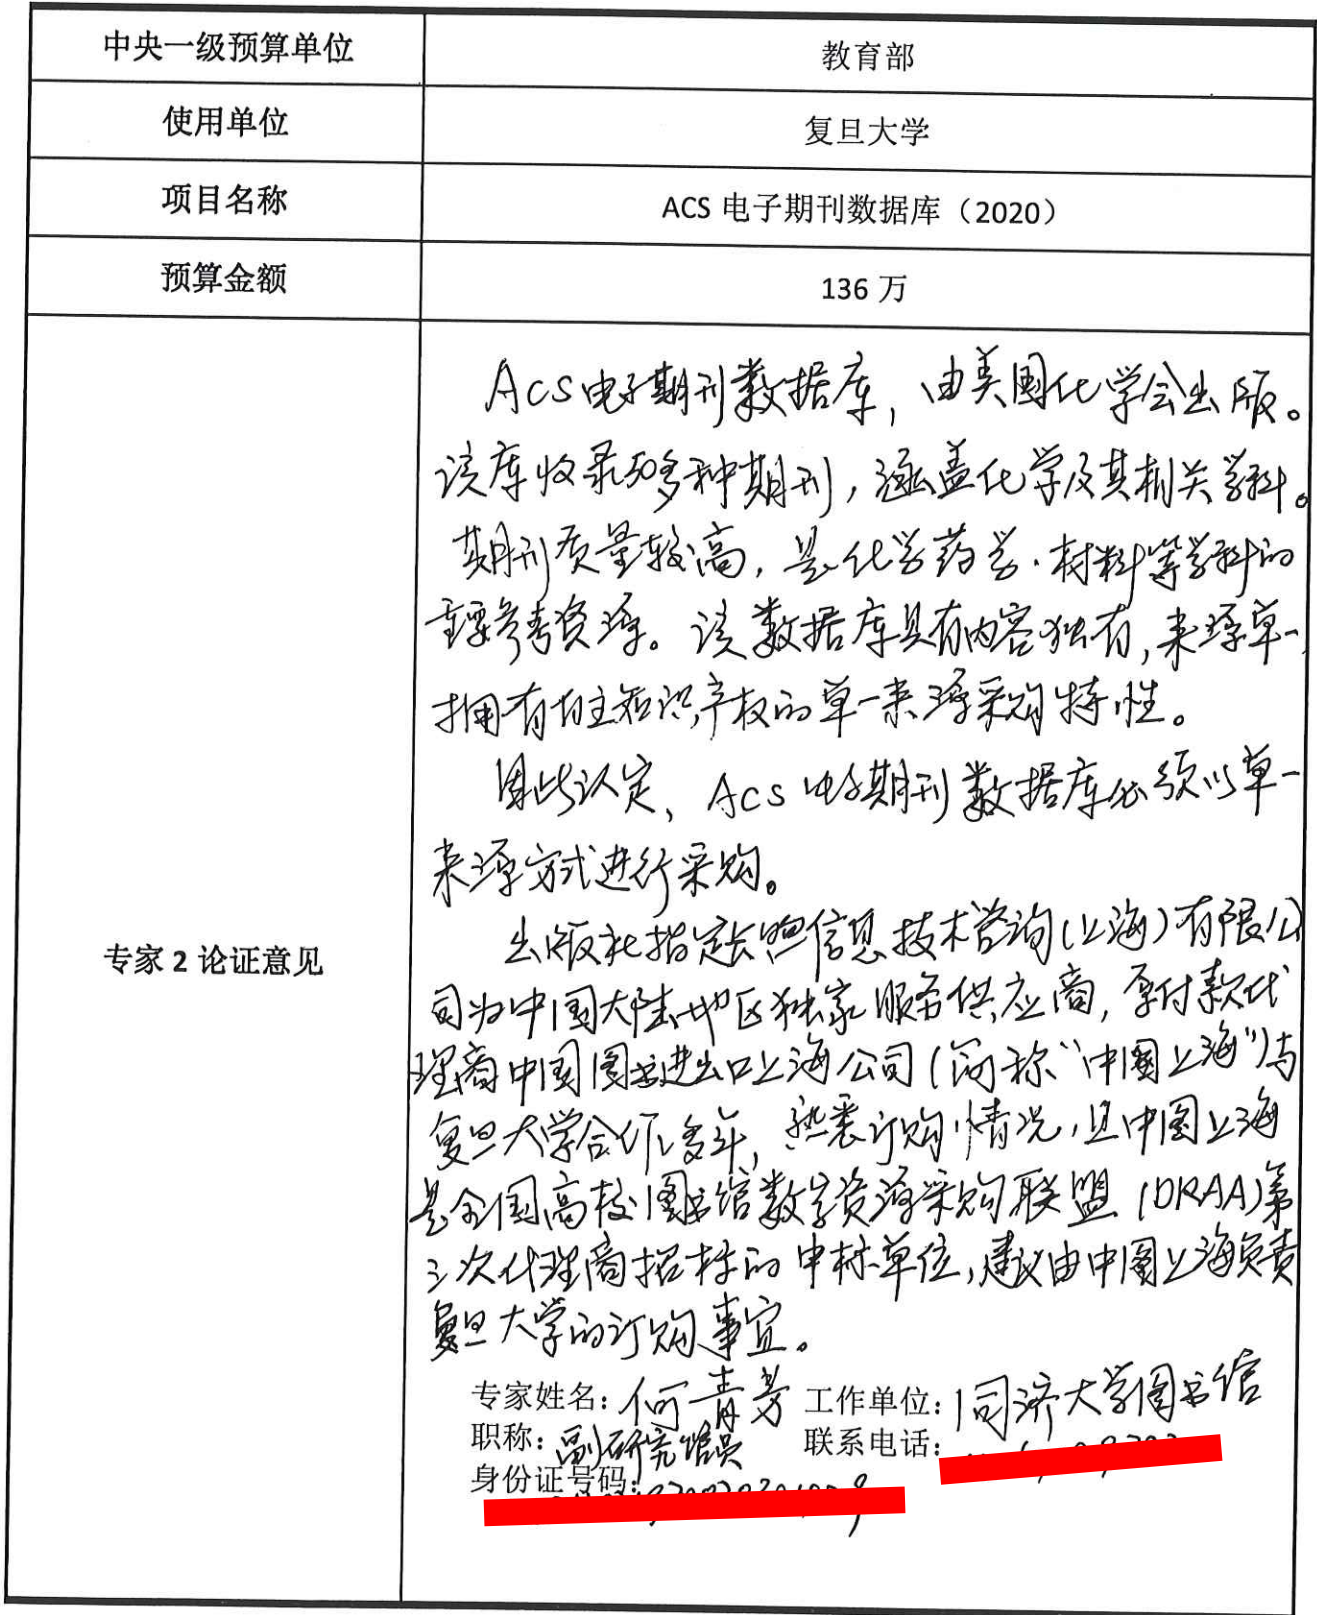 中央一级预算单位
教育部
使用单位
复旦大学
项目名称
ACS 电子期刊数据库（2020）
预算金额
136 万
专家 2 论证意见
ACS电子期刊数据库，由美国化学会出版。
该库收录50多种期刊，涵盖化学及其相关学科。
期刊质量较高，是化学药学、材料等学科的
重要参考资源。该数据库具有内容独有，来源单一，
拥有自主知识产权的单一来源采购特性。
因此认定，ACS电子期刊数据库必须以单一
来源方式进行采购。
出版社指定长煦信息技术咨询(上海)有限公
司为中国大陆地区独家服务供应商，原付款代
理商中国图书进出口上海公司(简称“中图上海”)与
复旦大学合作多年，熟悉订购情况，且中图上海
是全国高校图书馆数字资源采购联盟(DRAA)第
三次代理商招标的中标单位，建议由中图上海负责
复旦大学的订购事宜。
专家姓名：何青芳 工作单位：同济大学图书馆
职称：副研究馆员 联系电话：
身份证号码：